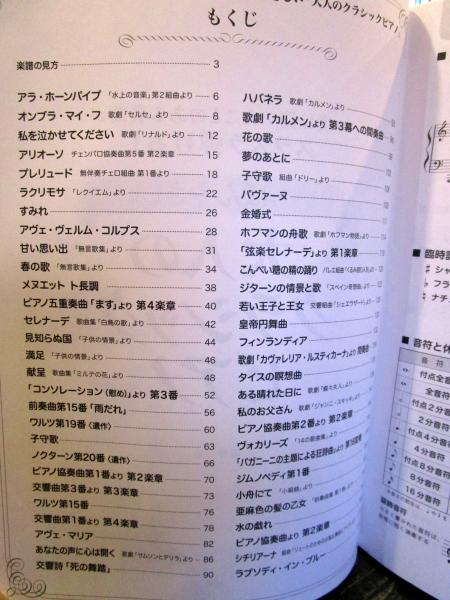 大人のクラシックピアノ
もくじ
楽譜の見方 3
アラ・ホーンパイプ 「水上の音楽」第2組曲より 6
オンブラ・マイ・フ 歌劇「セルセ」より 8
私を泣かせてください 歌劇「リナルド」より 12
アリオーソ チェンバロ協奏曲第5番 第2楽章 15
プレリュード 無伴奏チェロ組曲 第1番より 18
ラクリモサ 「レクイエム」より 22
すみれ 26
アヴェ・ヴェルム・コルプス 28
甘い思い出 「無言歌集」より 31
春の歌 「無言歌集」より 34
メヌエット ト長調 38
ピアノ五重奏曲「ます」より 第4楽章 40
セレナーデ 歌曲集「白鳥の歌」より 42
見知らぬ国 「子供の情景」より 44
満足 「子供の情景」より 46
献呈 歌曲集「ミルテの花」より 48
「コンソレーション(慰め)」より 第3番 52
前奏曲第15番「雨だれ」 56
ワルツ第19番〈遺作〉 60
子守歌 63
ノクターン第20番〈遺作〉 66
ピアノ協奏曲第1番より 第2楽章 70
交響曲第3番より 第3楽章 73
ワルツ第15番 76
交響曲第1番より 第4楽章 78
アヴェ・マリア 82
あなたの声に心は開く 歌劇「サムソンとデリラ」より 86
交響詩「死の舞踏」 90
ハバネラ 歌劇「カルメン」より
歌劇「カルメン」より 第3幕への間奏曲
花の歌
夢のあとに
子守歌 組曲「ドリー」より
パヴァーヌ
金婚式
ホフマンの舟歌 歌劇「ホフマン物語」より
「弦楽セレナーデ」より 第1楽章
こんぺい糖の精の踊り バレエ組曲「くるみ割り人形」より
ジターンの情景と歌 「スペイン奇想曲」より
若い王子と王女 交響組曲「シェエラザード」より
皇帝円舞曲
フィンランディア
歌劇「カヴァレリア・ルスティカーナ」より 間奏曲
タイスの瞑想曲
ある晴れた日に 歌劇「蝶々夫人」より
私のお父さん 歌劇「ジャンニ・スキッキ」より
ピアノ協奏曲第2番より 第2楽章
ヴォカリーズ 「14の歌曲集」より
「パガニーニの主題による狂詩曲」より 第18変奏
ジムノペディ第1番
小舟にて 「小組曲」より
亜麻色の髪の乙女 「前奏曲集 第1巻」より
水の戯れ
ピアノ協奏曲より 第2楽章
シチリアーナ
ラプソディ・イン・ブルー
■ 臨時記
♯ シャ
♭ フラ
♮ ナチ
■ 音符と休
音符
付点全音符
全音符
付点2分音符
2分音符
付点4分音符
4分音符
付点8分音符
8分音符
16分音符